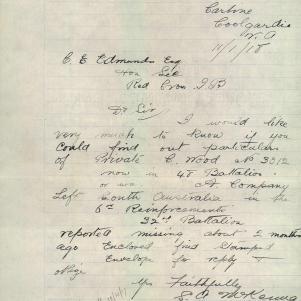 Carbine
Coolgardie
W.A
11/1/18
C. E Edmunds Esq
Hon Sec
Red Cross I.B
Dr Sir
I would like
very much to know if you
could find out particulars
of Private C. Wood No 3012
now in 48 Battalion.
or was A Company
Left South Australia in the
6th Reinforcements
32nd Battalion
reported missing about 2 months
ago Enclosed find Stamped
Envelope for reply
oblige
Yrs Faithfully